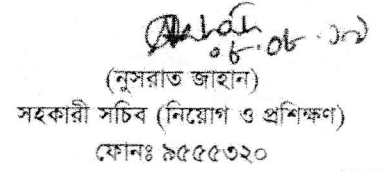 (নুসরাত জাহান)
সহকারী সচিব (নিয়োগ ও প্রশিক্ষণ)
ফোনঃ ৯৫৫৫৩২০